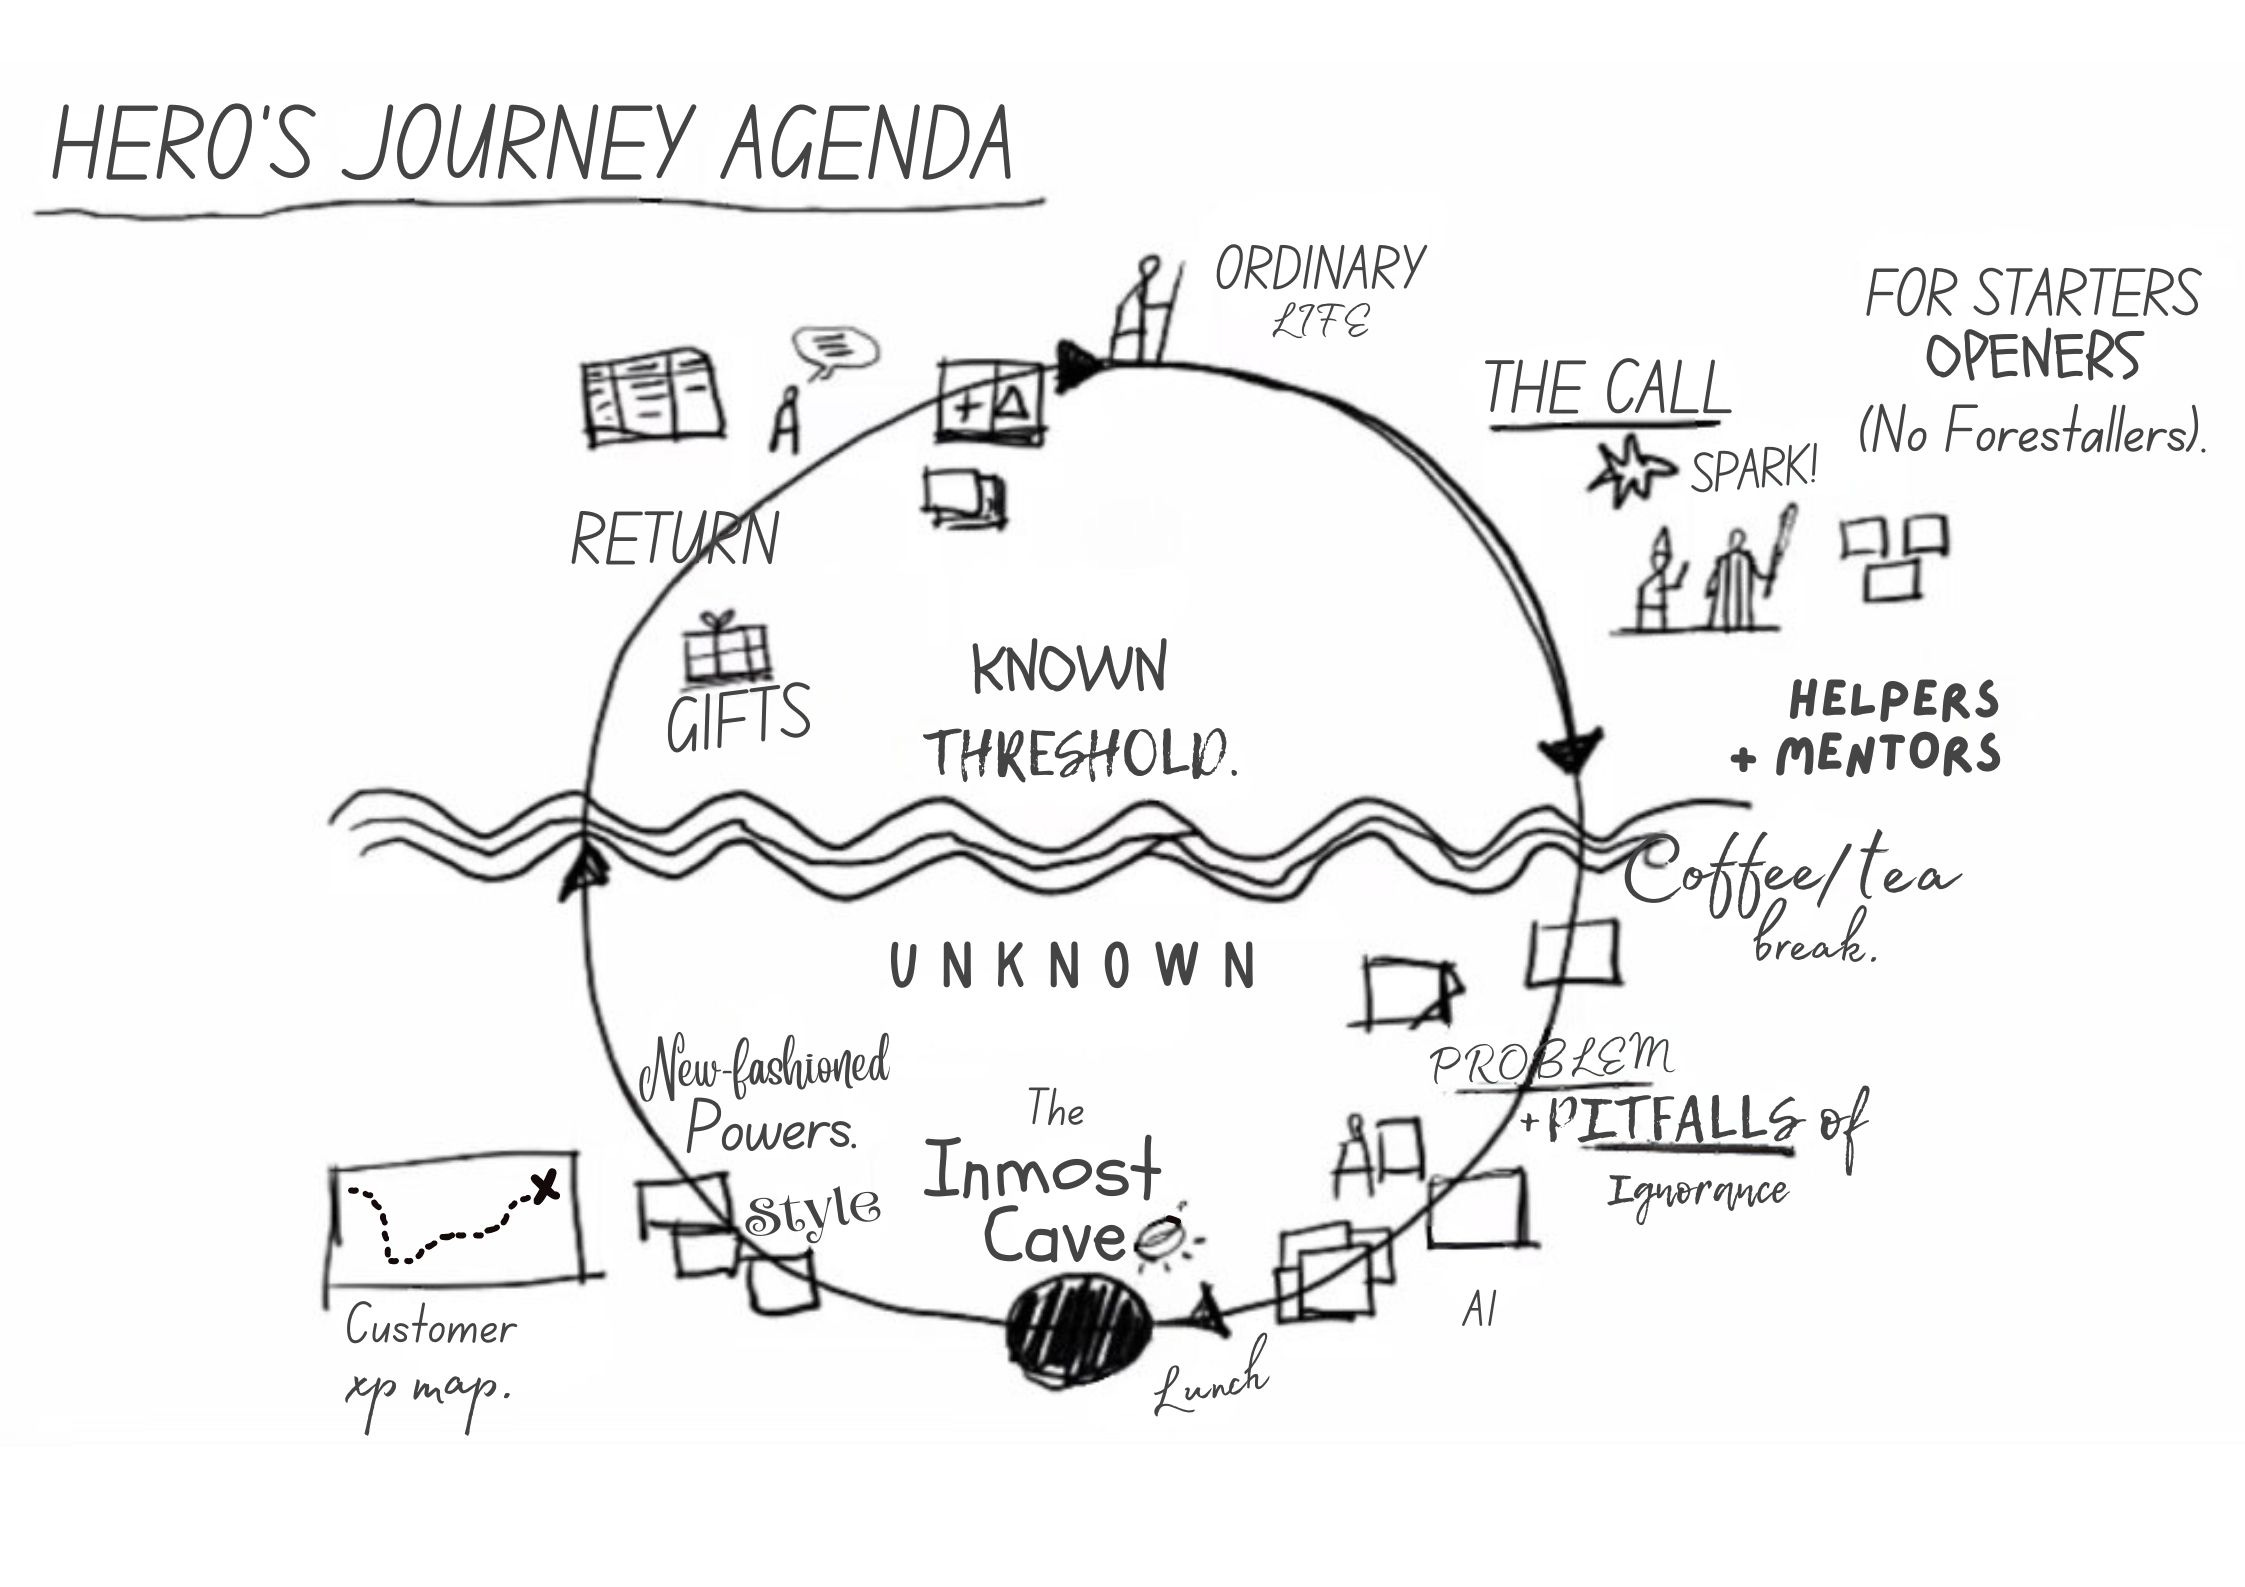 HERO'S JOURNEY AGENDA
ORDINARY
LIFE
FOR STARTERS
OPENERS
(No Forestallers).
THE CALL
SPARK!
HELPERS
+ MENTORS
RETURN
GIFTS
KNOWN
THRESHOLD.
Coffee/tea
break.
UNKNOWN
PROBLEM
+PITFALLS of
Ignorance
AI
The
Inmost
Cave
Lunch
New-fashioned
Powers.
style
Customer
xp map.